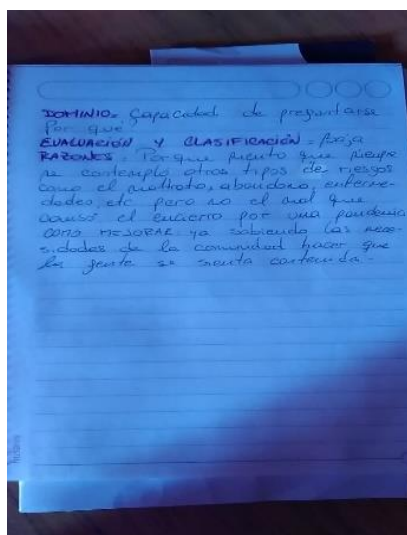 DOMINIO= Capacidad de preguntarse
Por qué
EVALUACIÓN Y CLASIFICACIÓN = Baja
RAZONES = Porque siento que siempre
se contemplo otros tipos de riesgos
como el maltrato, abandono, enferme-
dades, etc pero no el mal que
causó el encierro por una pandemia
COMO MEJORAR ya sabiendo las nece-
sidades de la comunidad hacer que
la gente se sienta contenida.-